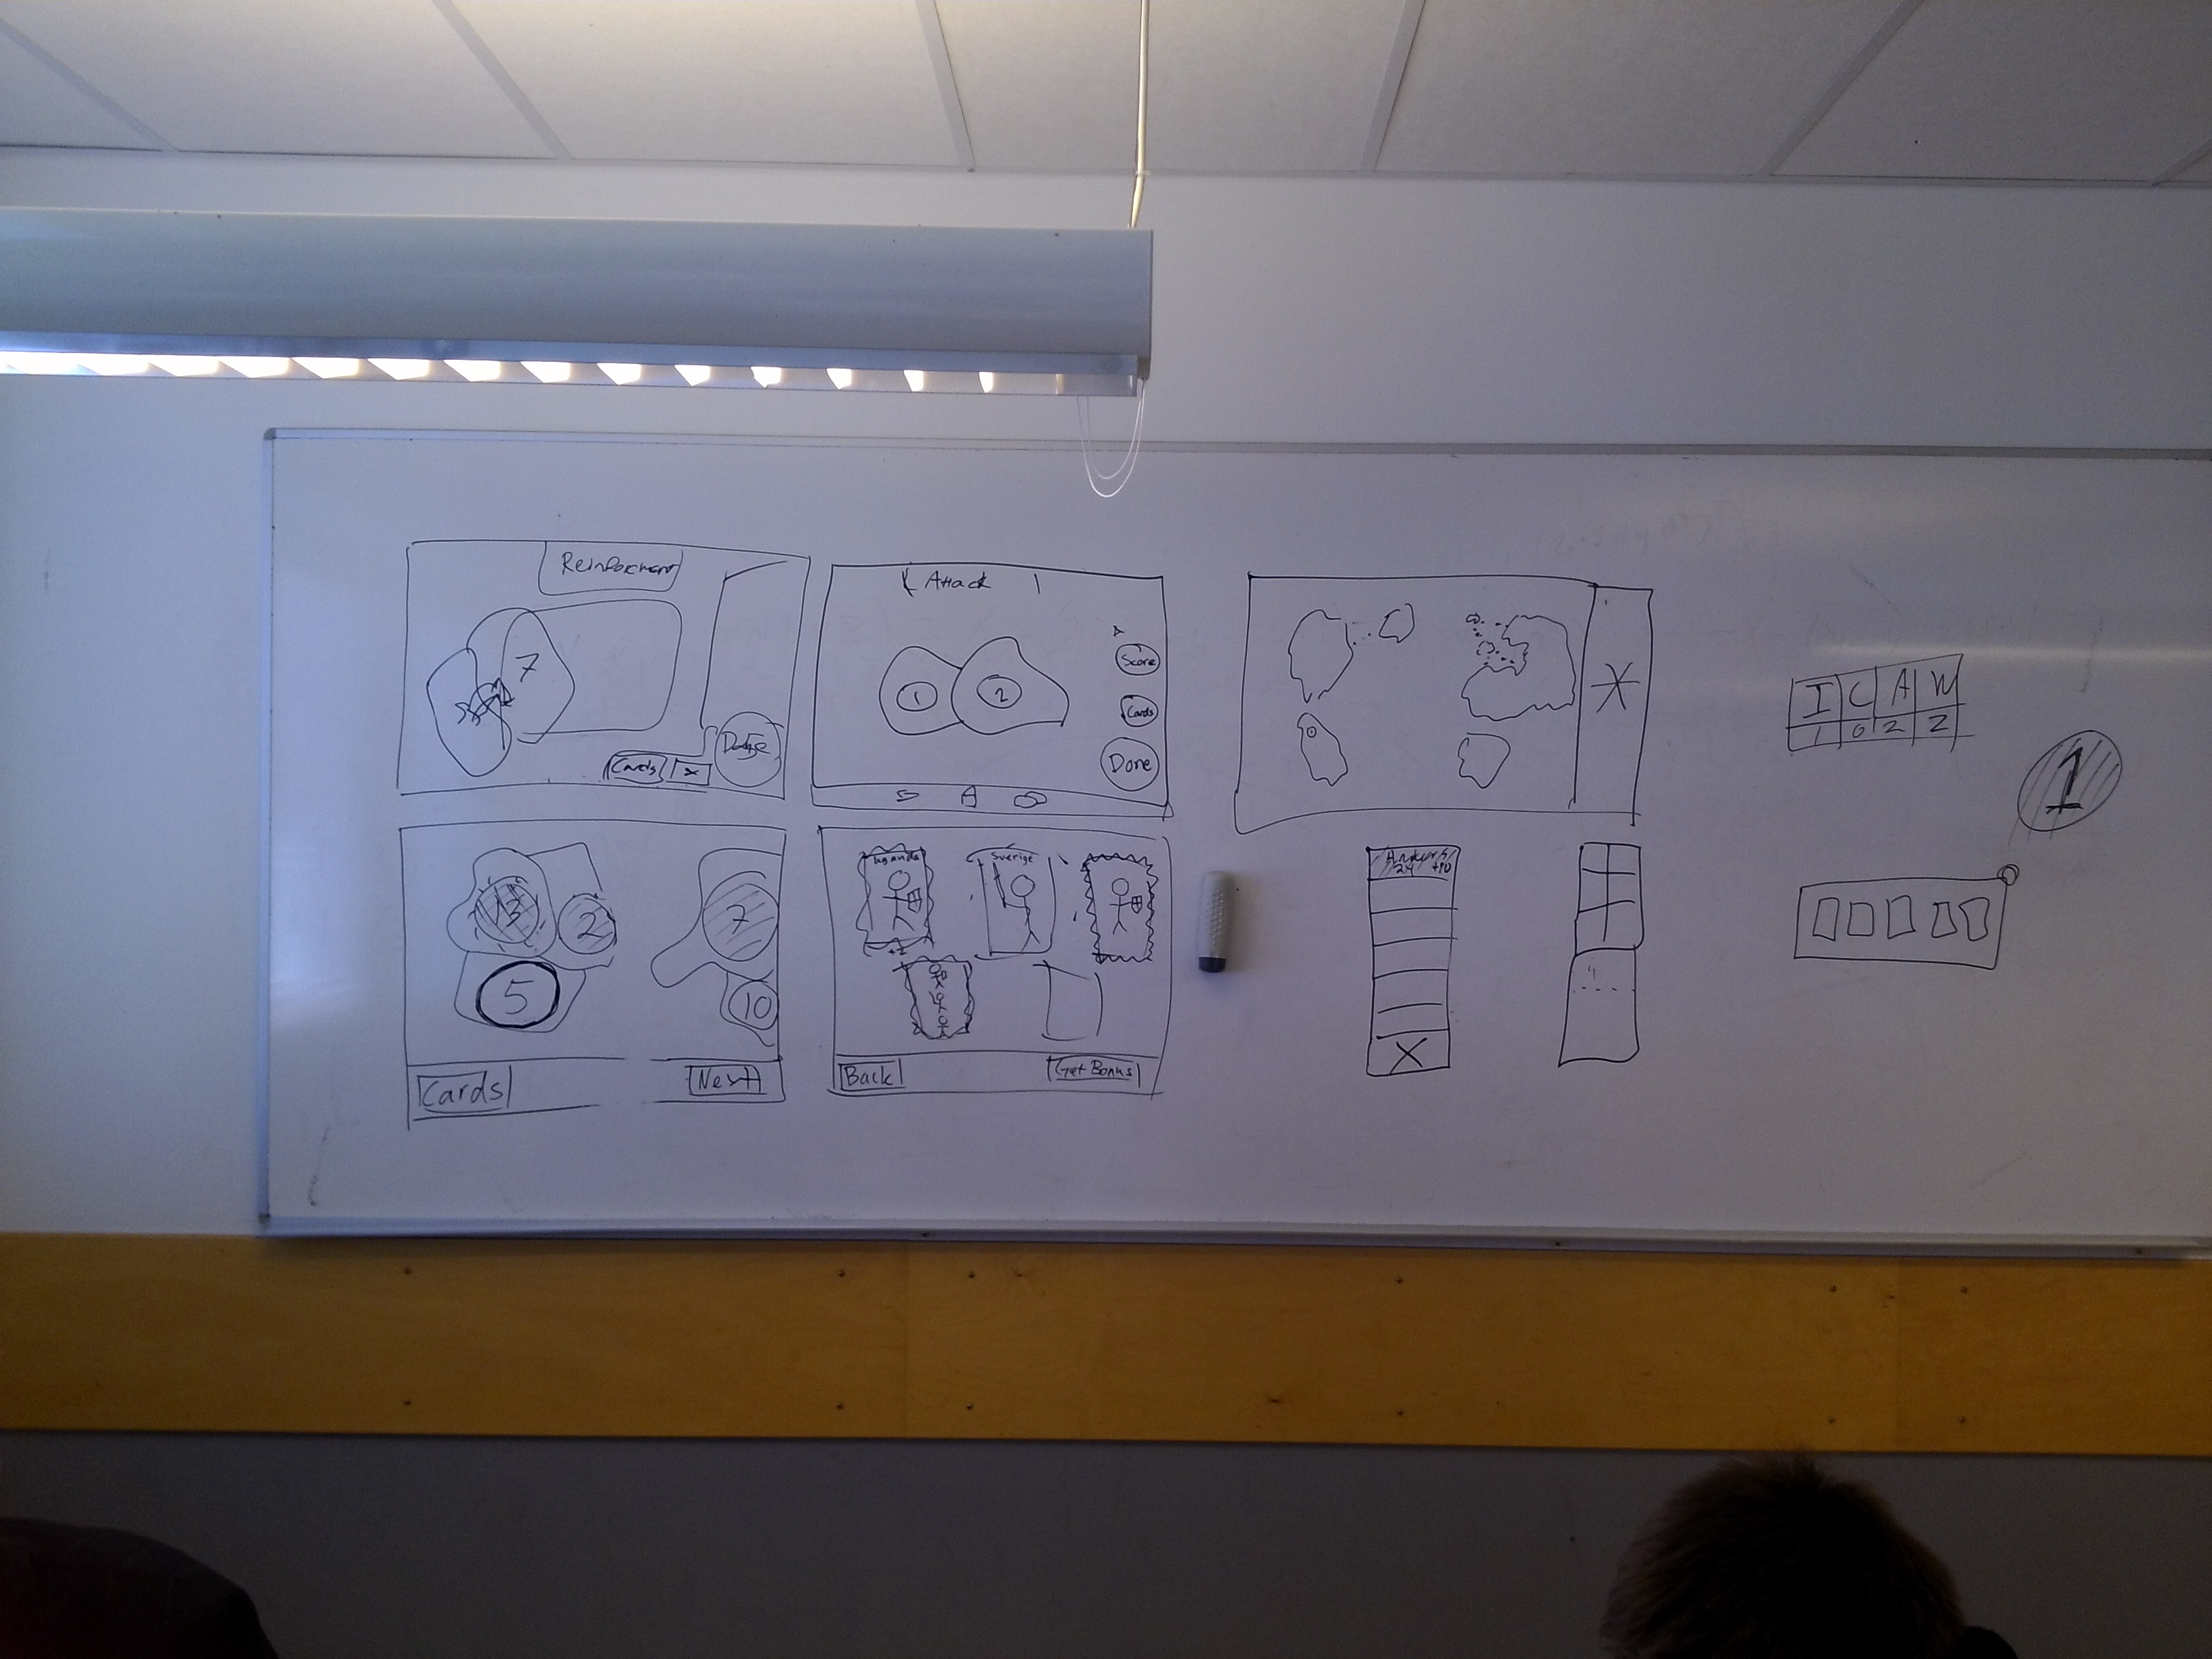 Reinforcment
7
Cards
x
Attack
1
2
Score
Cards
Done
I C A W
1 0 2 2
1
13
2
5
7
10
Cards
Next
uganda
+2
Sverige
Back
Get Bonus
24 +10
X